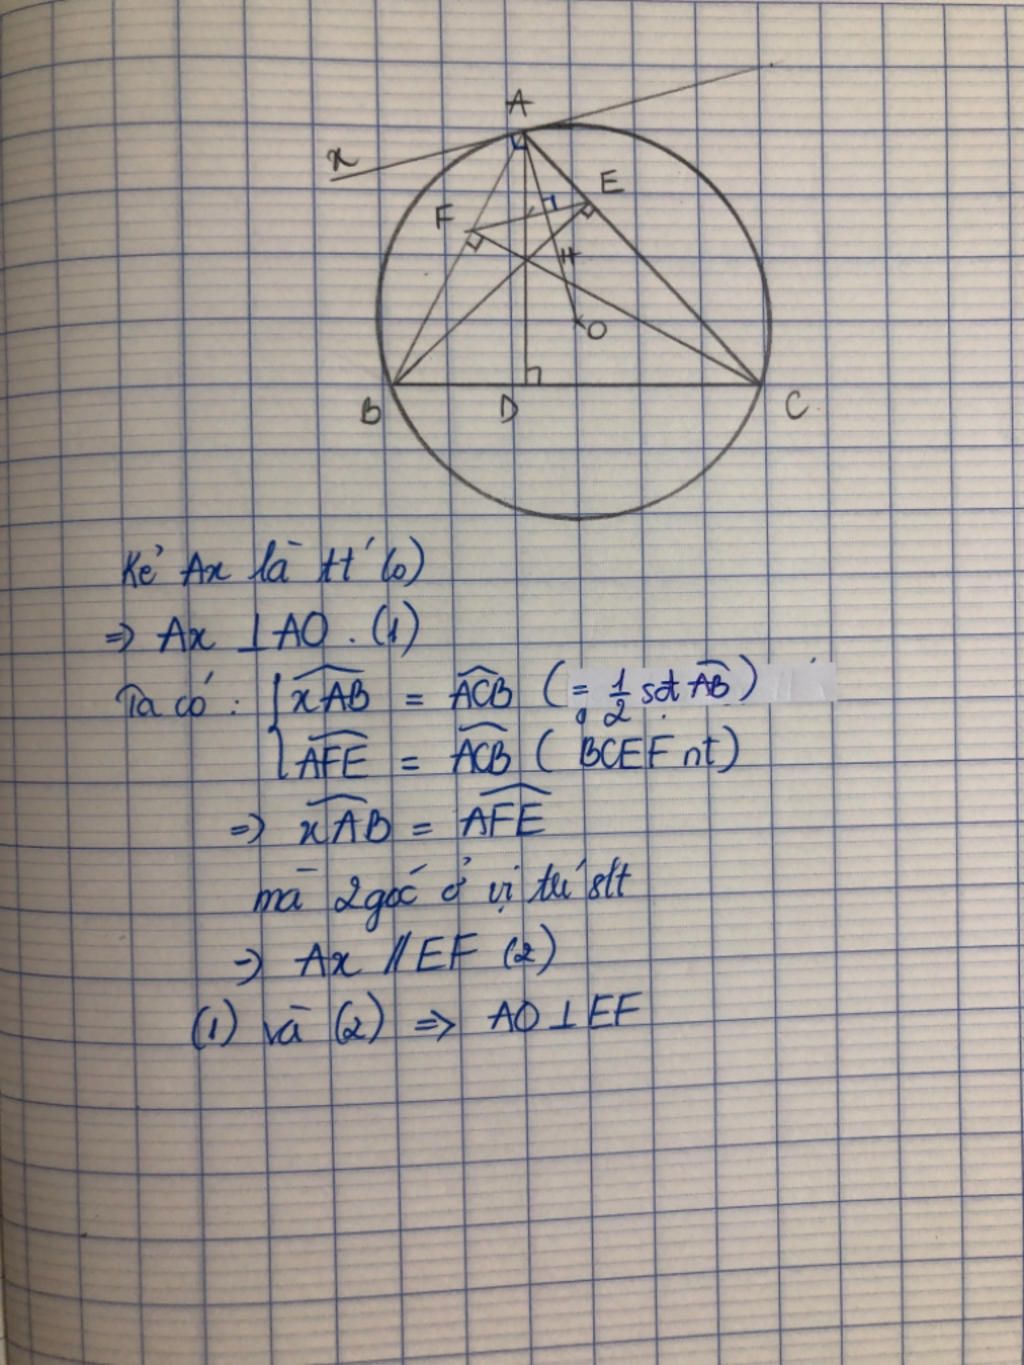 A
x
E
F
H
O
B D C
Kẻ Ax là tt (O)
⇒ Ax ⊥ AO . (1)
Ta có : { xAB = ACB ( = 1/2 sđt AB )
{ AFE = ACB ( BCEF nt )
⇒ xAB = AFE
mà 2 góc ở vị trí slt
⇒ Ax // EF (2)
(1) và (2) ⇒ AO ⊥ EF